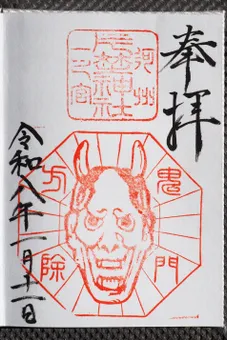 奉拝
河州
二之宮
鬼門
方除
令和八年一月十一日